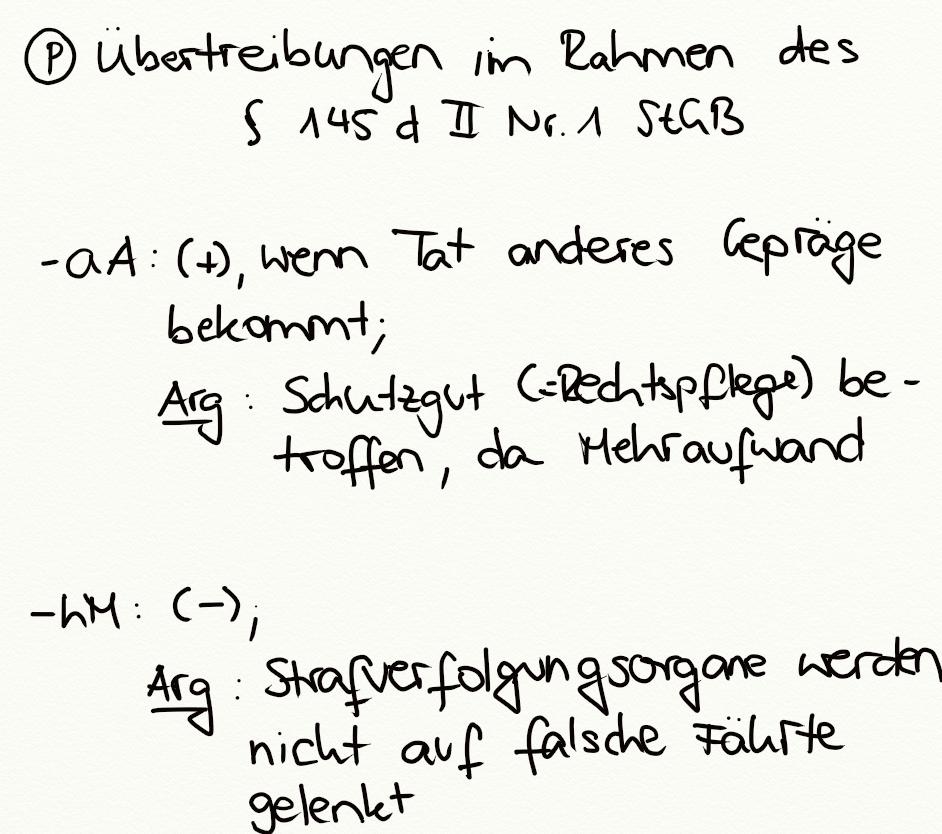 Ⓟ Übertreibungen im Rahmen des
§ 145 d II Nr. 1 StGB
- aA: (+), wenn Tat anderes Gepräge
bekommt;
Arg: Schutzgut (=Rechtspflege) be-
troffen, da Mehraufwand
- hM: (-);
Arg: Strafverfolgungsorgane werden
nicht auf falsche Fährte
gelenkt